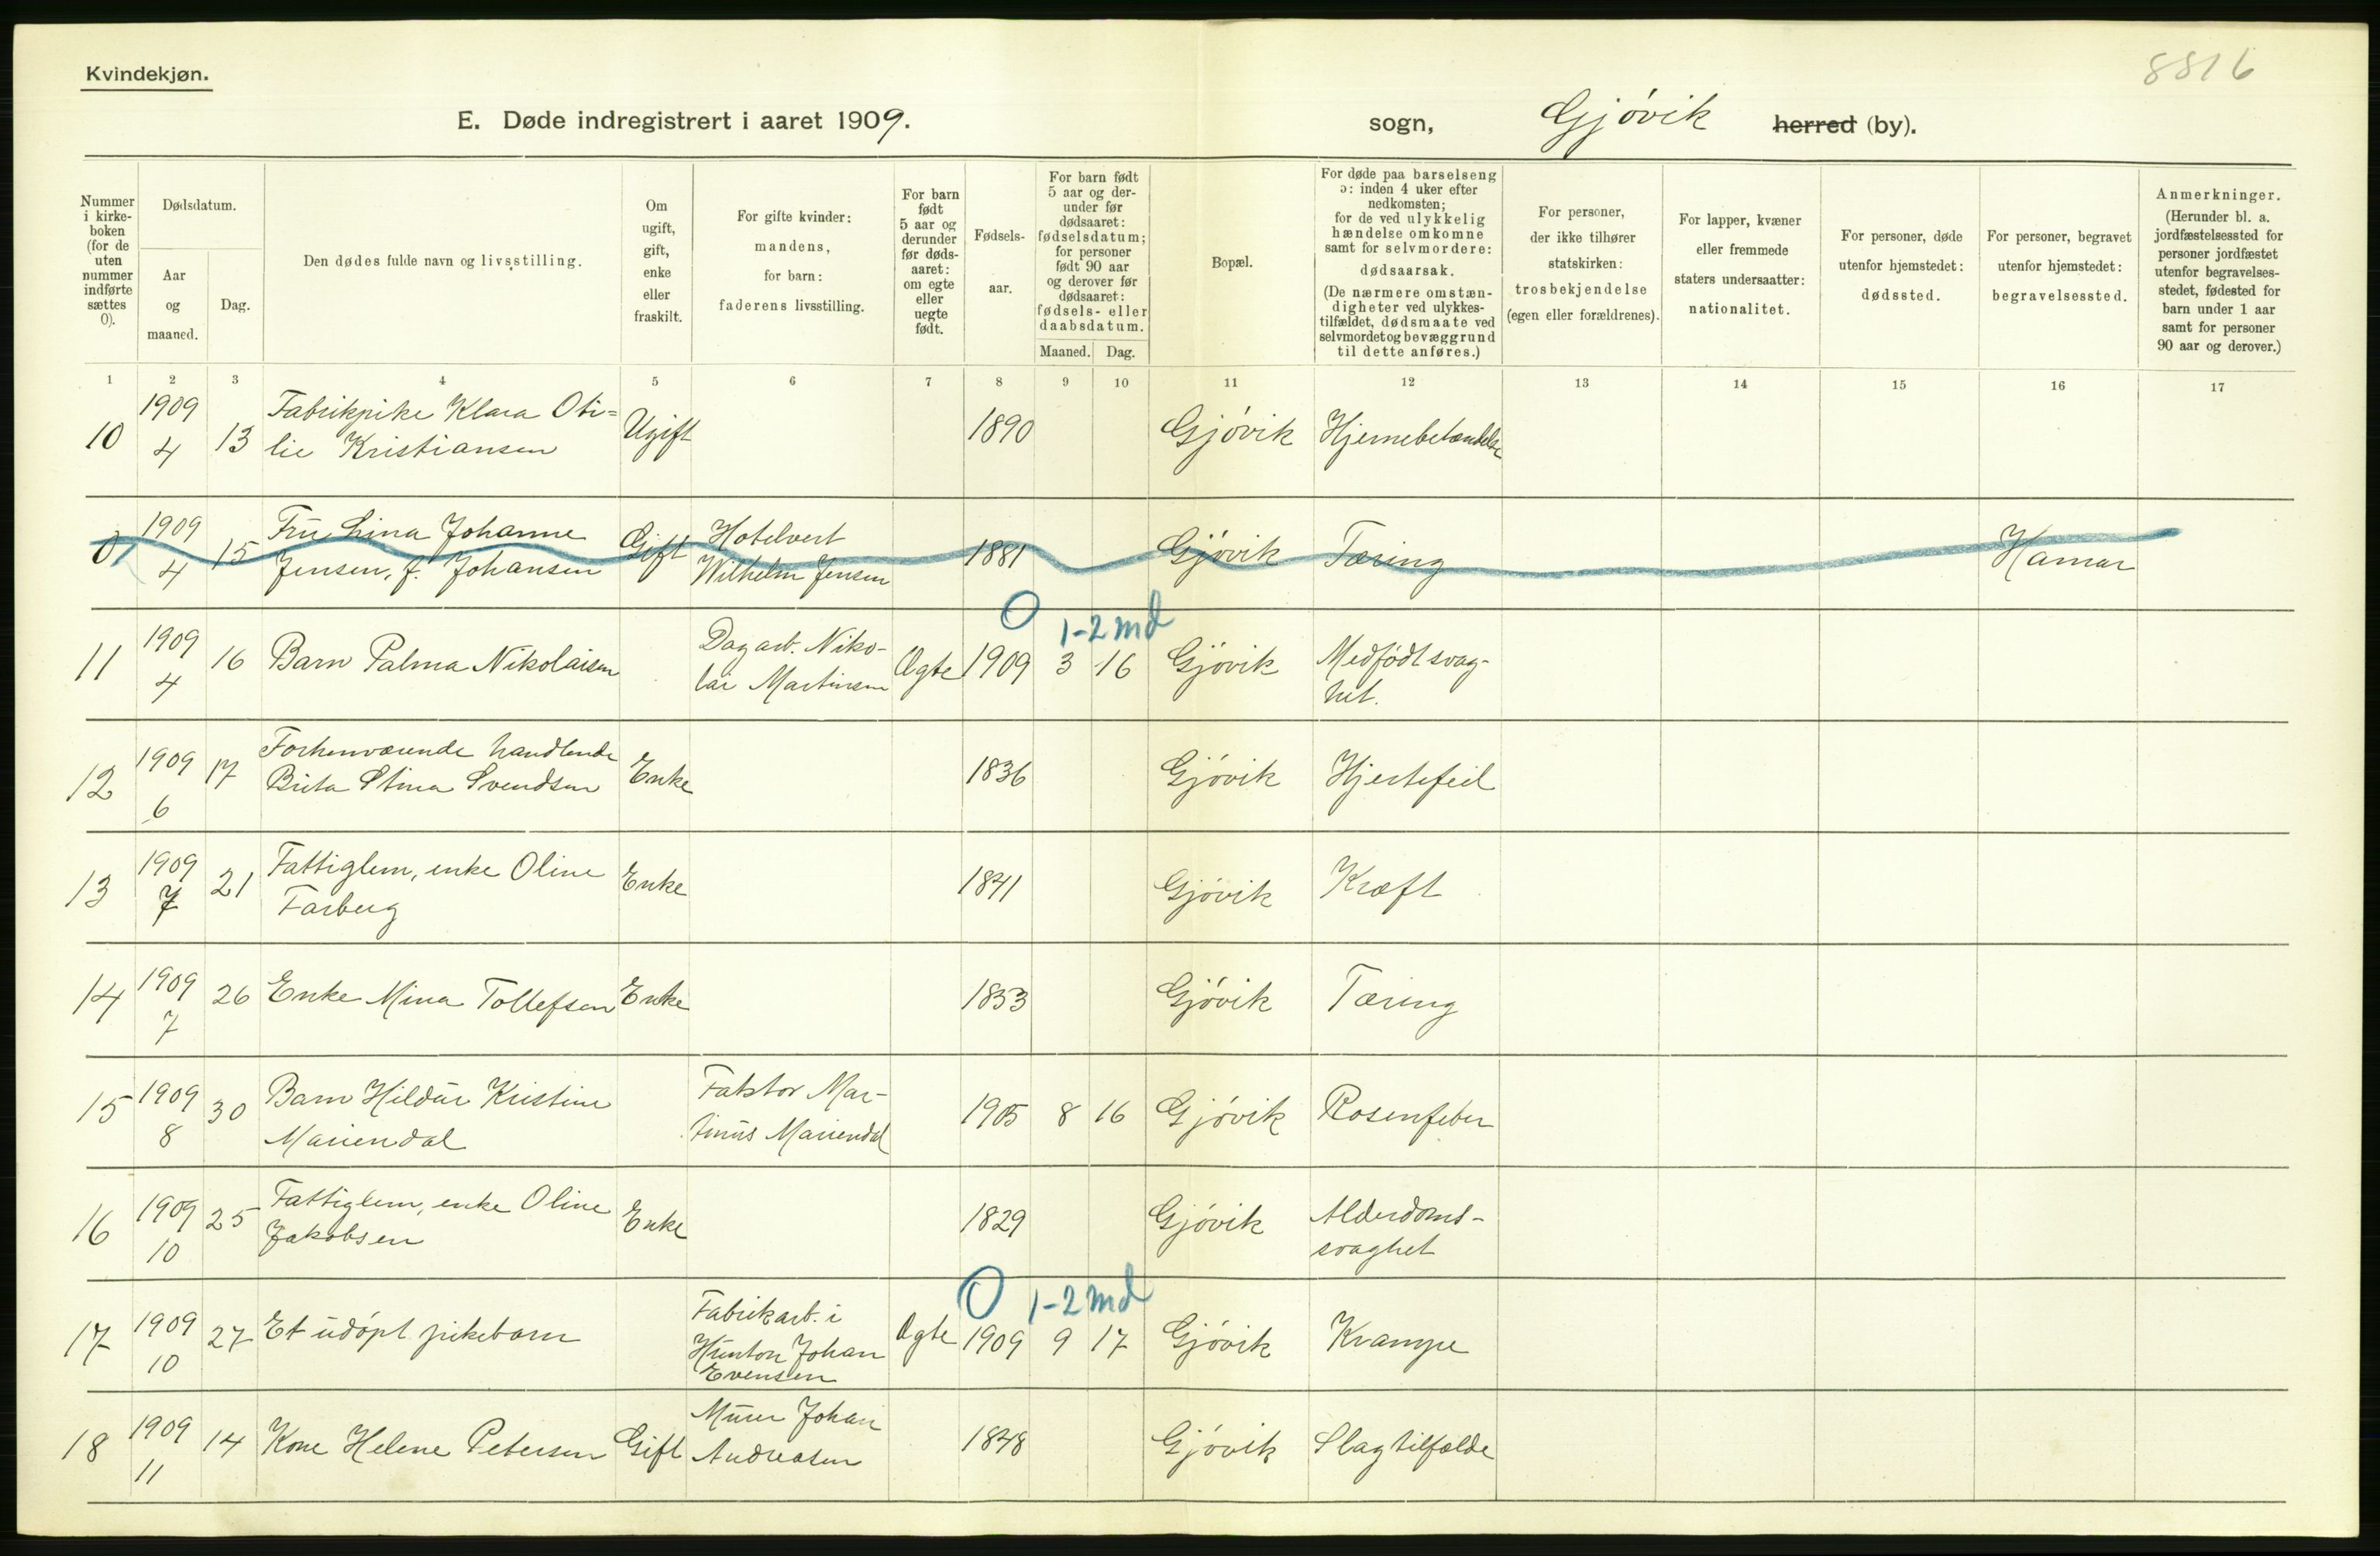 Kvindekjøn.
8816
E. Døde indregistrert i aaret 1909.
sogn, Gjøvik herred (by).
Nummer i kirke-boken (for de uten nummer indførte sættes 0).
Dødsdatum.
Aar og maaned.
Dag.
Den dødes fulde navn og livsstilling.
Om ugift, gift, enke eller fraskilt.
For gifte kvinder: mandens, for barn: faderens livsstilling.
For barn født 5 aar og derunder før døds-aaret: om egte eller uegte født.
Fødsels-aar.
For barn født 5 aar og der-under før dødsaaret: fødselsdatum; for personer født 90 aar og derover før dødsaaret: fødsels- eller daabsdatum.
Maaned. Dag.
Bopæl.
For døde paa barselseng ɔ: inden 4 uker efter nedkomsten; for de ved ulykkelig hændelse omkomne samt for selvmordere: dødsaarsak. (De nærmere omstæn-digheter ved ulykkes-tilfældet, dødsmaate ved selvmordet og bevæggrund til dette anføres.)
For personer, der ikke tilhører statskirken: trosbekjendelse (egen eller forældrenes).
For lapper, kvæner eller fremmede staters undersaatter: nationalitet.
For personer, døde utenfor hjemstedet: dødssted.
For personer, begravet utenfor hjemstedet: begravelsessted.
Anmerkninger. (Herunder bl. a. jordfæstelsessted for personer jordfæstet utenfor begravelses-stedet, fødested for barn under 1 aar samt for personer 90 aar og derover.)
1 2 3 4 5 6 7 8 9 10 11 12 13 14 15 16 17
10 1909 4 13 Fabrikpike Klara Oti=lie Kristiansen Ugift 1890 Gjøvik Hjernebetændelse
0 1909 4 15 Fru Lina Johanne Jensen, f. Johansen Gift Hotelvert Wilhelm Jensen 1881 Gjøvik Tæring Hamar
0 1-2 md
11 1909 4 16 Barn Palma Nikolaisen Dagarb. Niko-lai Martinsen Ægte 1909 3 16 Gjøvik Medfødt svag-het.
12 1909 6 17 Forhenværende handlende Brita Stina Svendsen Enke 1836 Gjøvik Hjertefeil
13 1909 7 21 Fattiglem, enke Oline Farberg Enke 1841 Gjøvik Kræft
14 1909 7 26 Enke Mina Tollefsen Enke 1853 Gjøvik Tæring
15 1909 8 30 Barn Hildur Kristine Mariendal Faktor Mar-tinus Mariendal 1905 8 16 Gjøvik Rosenfeber
16 1909 10 25 Fattiglem, enke Oline Jakobsen Enke 1829 Gjøvik Alderdoms-svaghet
0 1-2 md
17 1909 10 27 Et udøpt pikebarn Fabrikarb. i Hunton Johan Evensen Ægte 1909 9 17 Gjøvik Krampe
18 1909 11 14 Kone Helene Petersen Gift Murer Johan Andreasen 1848 Gjøvik Slagtilfælde